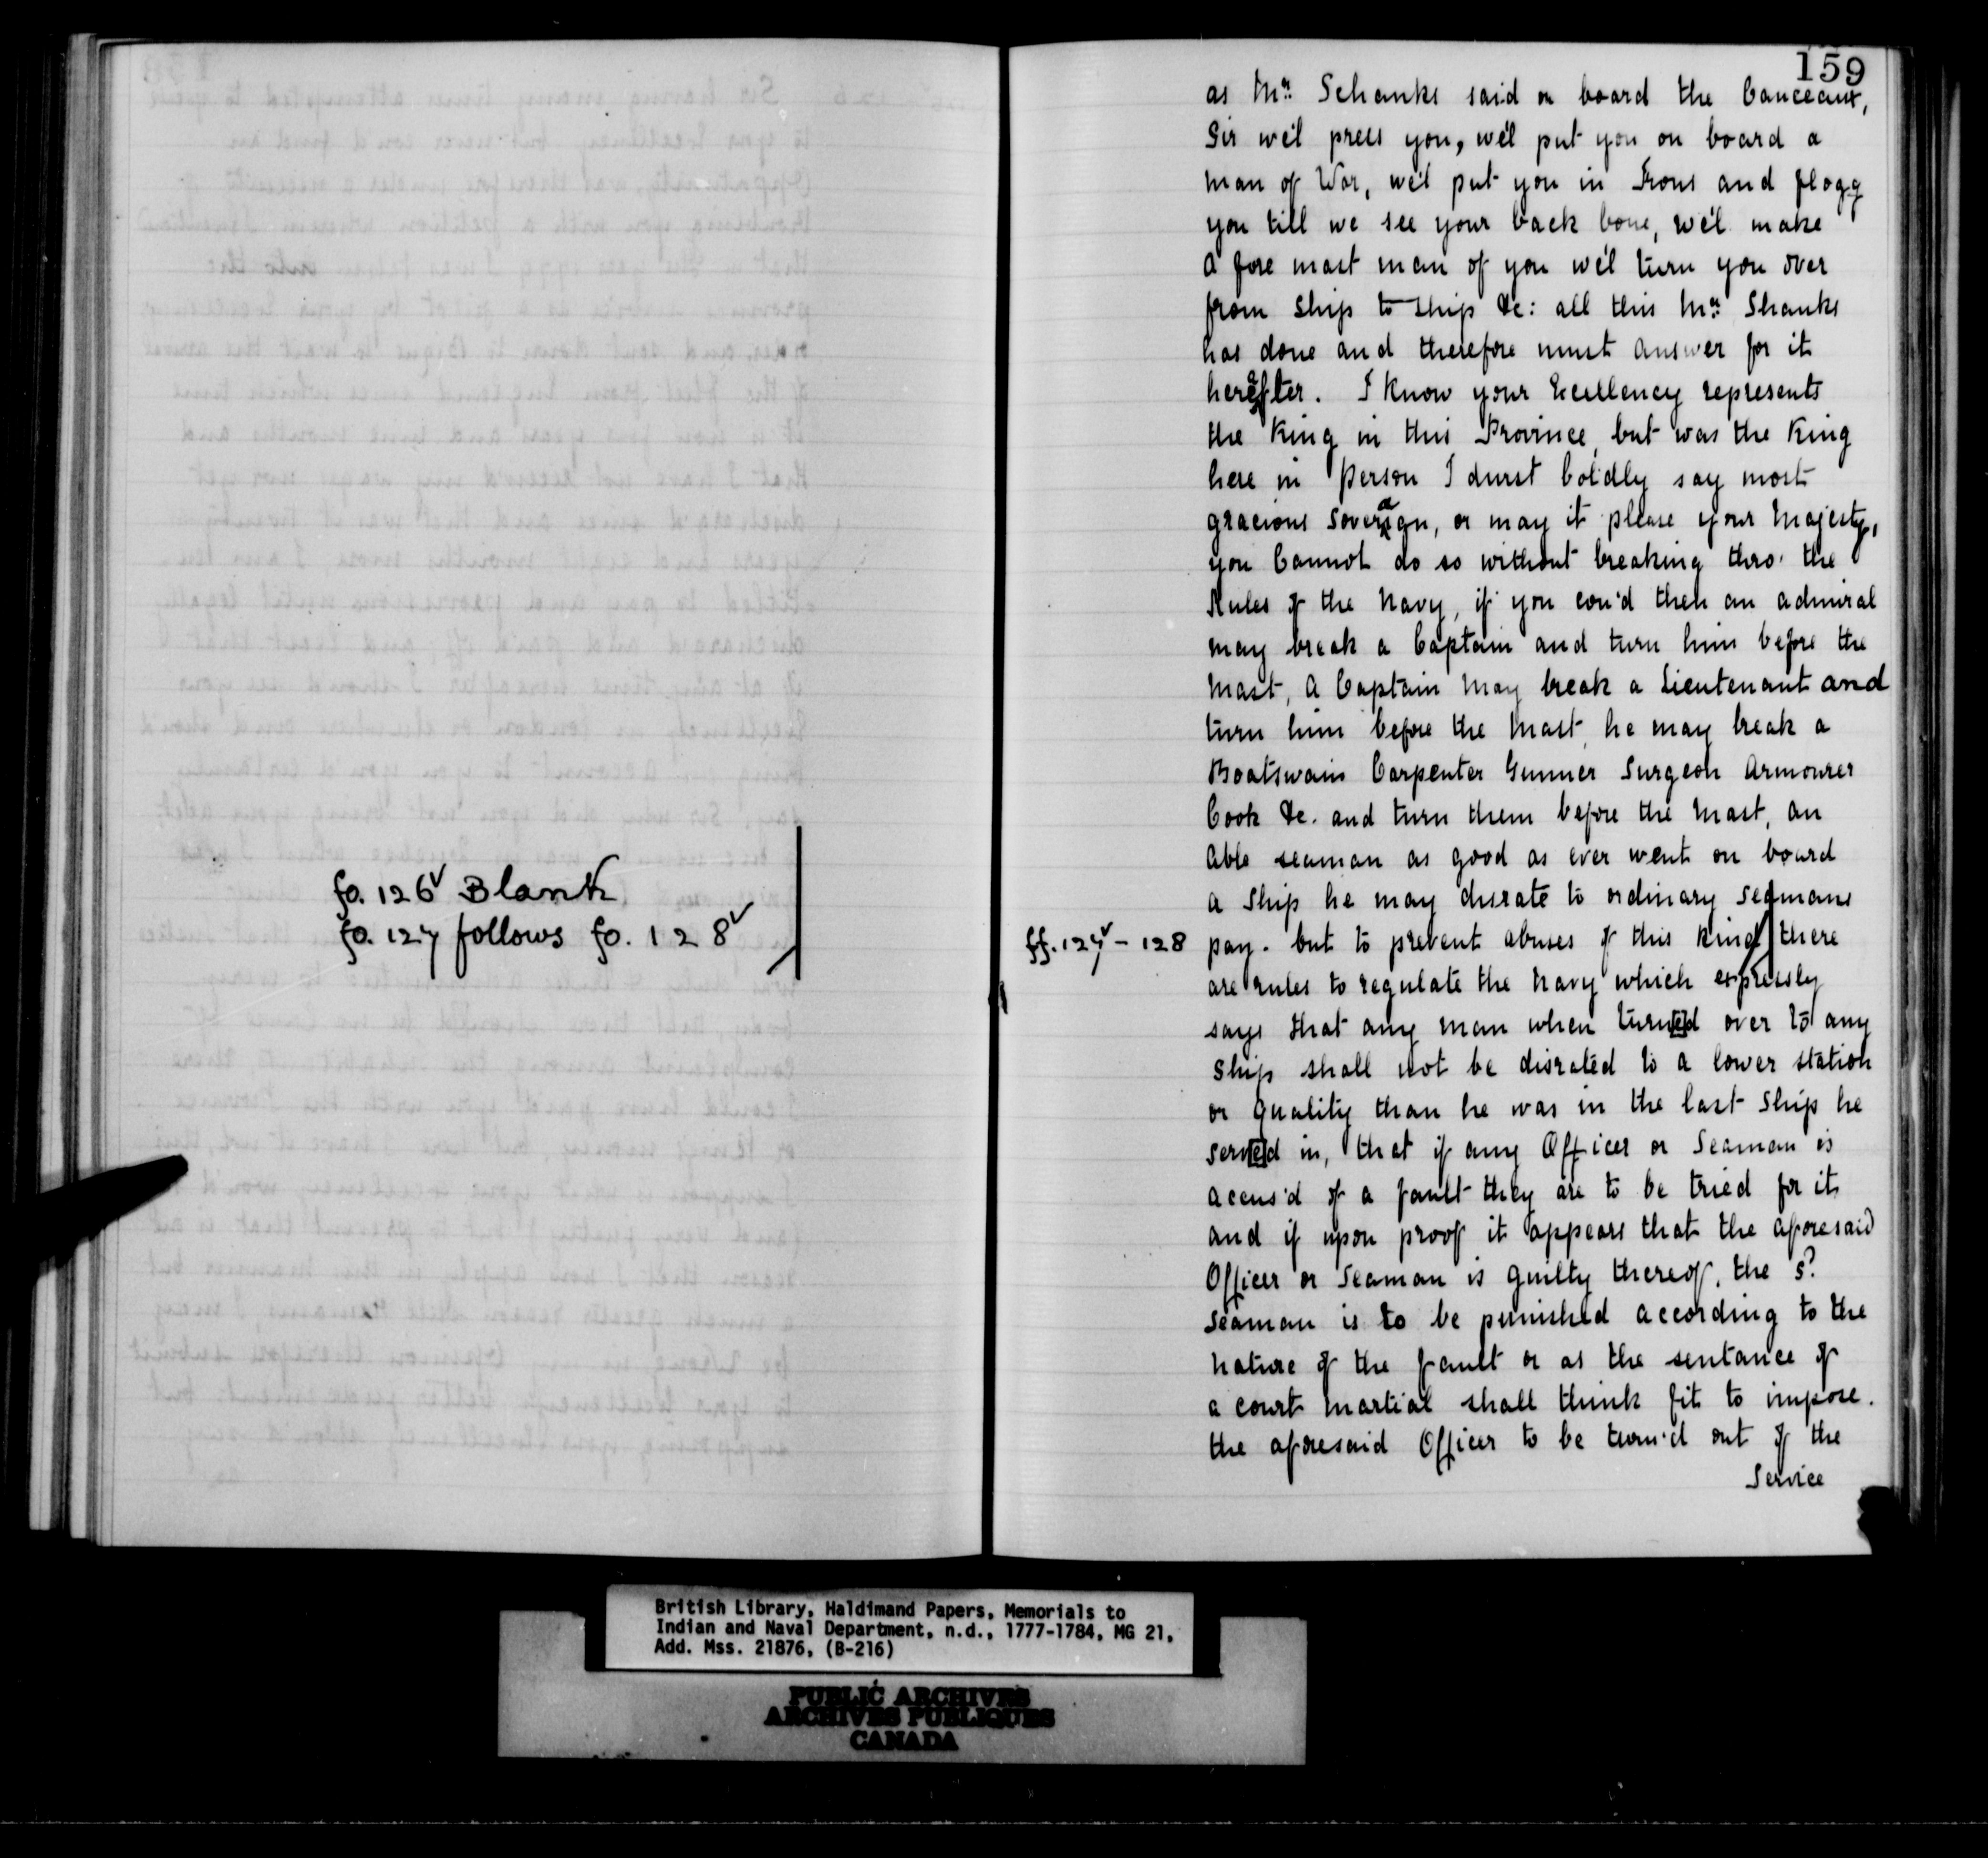 fo. 126v Blank
fo. 127 follows fo. 128v
159
as Mr. Schanks said on board the Canceaux,
Sir we'l press you, we'l put you on board a
man of War, we'l put you in Irons and flogg
you till we see your back bone, we'l make
a fore mast man of you we'l turn you over
from ship to ship &c: all this Mr. Shanks
has done and therefore must answer for it
hereafter. I know your Excellency represents
the King in this Province, but was the King
here in Person I durst boldly say most
gracious Soveraign, or may it please your Majesty,
you Cannot do so without breaking thro' the
Rules of the Navy, if you cou'd then an admiral
may break a Captain and turn him before the
Mast, a Captain may break a Lieutenant and
turn him before the Mast, he may break a
Boatswain Carpenter Gunner Surgeon Armourer
Cook &c. and turn them before the Mast, an
able seaman as good as ever went on board
a Ship he may disrate to ordinary seamans
ff. 127v - 128 pay. but to prevent abuses of this kind there
are rules to regulate the Navy which expressly
says that any man when turn[e]d over to any
Ship shall not be disrated to a lower station
or quality than he was in the last Ship he
serv[e]d in, that if any Officer or Seaman is
accus'd of a fault they are to be tried for it
and if upon proof it appears that the aforesaid
Officer or Seaman is guilty thereof, the sd.
Seaman is to be punished according to the
nature of the fault or as the sentance of
a court martial shall think fit to impose.
the aforesaid Officer to be turn'd out of the
Service
British Library, Haldimand Papers, Memorials to
Indian and Naval Department, n.d., 1777-1784, MG 21,
Add. Mss. 21876, (B-216)
PUBLIC ARCHIVES
ARCHIVES PUBLIQUES
CANADA